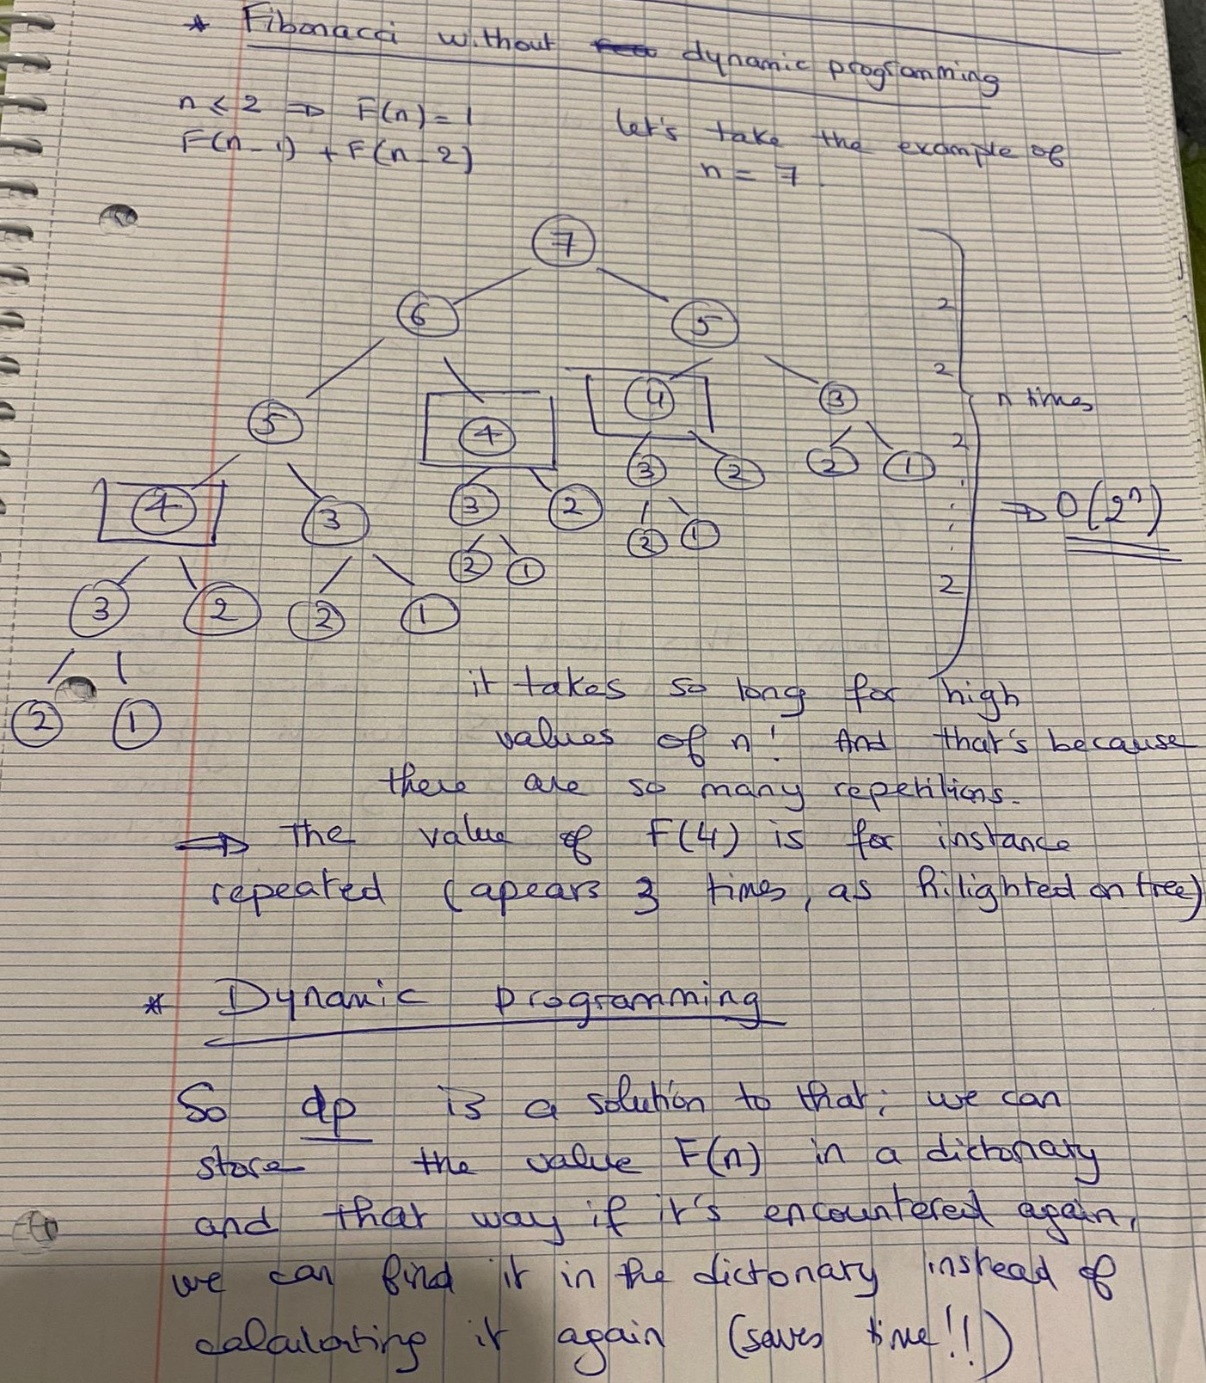 * Fibonacci without dynamic programming
n < 2 ⇒ F(n) = 1
F(n-1) + F(n-2)
let's take the example of
n = 7.
7
6 5
5 4 4 3
4 3 3 2 3 2 2 1
3 2 2 1 2 1 2 1
2 1
2
2
2
:
2
n times
⇒ O(2ⁿ)
it takes so long for high
values of n! And that's because
there are so many repetitions.
⇒ The value of F(4) is for instance
repeated (apears 3 times, as hilighted on tree)
* Dynamic programming
So dp is a solution to that; we can
store the value F(n) in a dictonary
and that way if it's encountered again,
we can find it in the dictonary instead of
calculating it again (saves time!!)